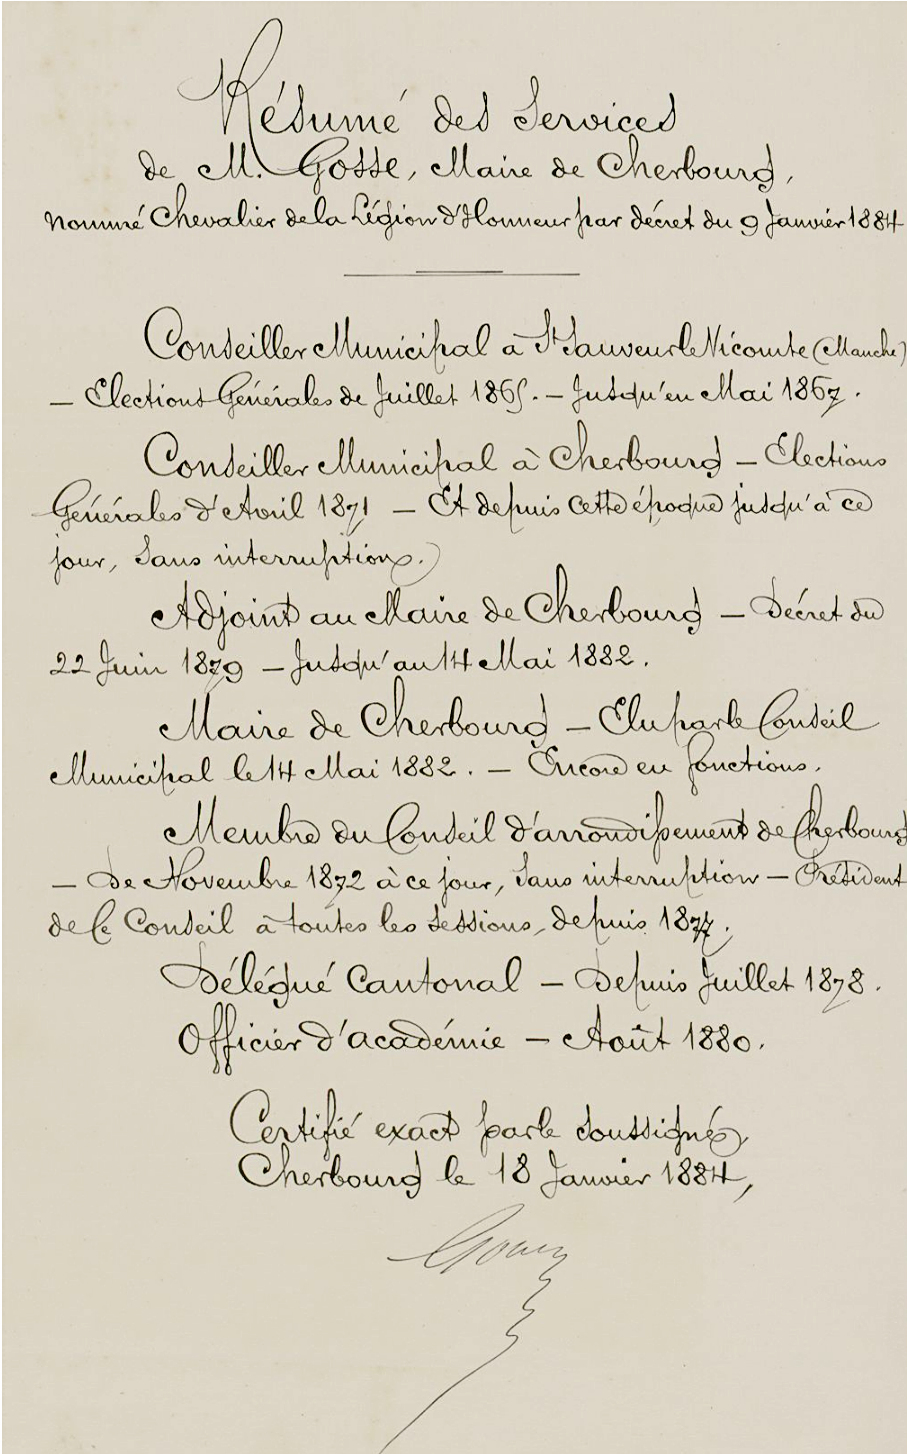 Résumé des Services
de M. Gosse, Maire de Cherbourg,
nommé Chevalier de la Légion d'Honneur par décret du 9 Janvier 1884
Conseiller Municipal à St Sauveur le Vicomte (Manche)
— Elections Générales de Juillet 1865. — Jusqu'en Mai 1867.
Conseiller Municipal à Cherbourg — Elections
Générales d'Avril 1871 — Et depuis cette époque jusqu'à ce
jour, sans interruption.
Adjoint au Maire de Cherbourg — Décret du
22 Juin 1879 — Jusqu'au 14 Mai 1882.
Maire de Cherbourg — Elu par le Conseil
Municipal le 14 Mai 1882. — Encore en fonctions.
Membre du Conseil d'arrondissement de Cherbourg
— De Novembre 1872 à ce jour, sans interruption — Président
de ce Conseil à toutes les sessions, depuis 1877.
Délégué Cantonal — Depuis Juillet 1878.
Officier d'académie — Août 1880.
Certifié exact par le soussigné,
Cherbourg le 18 Janvier 1884,